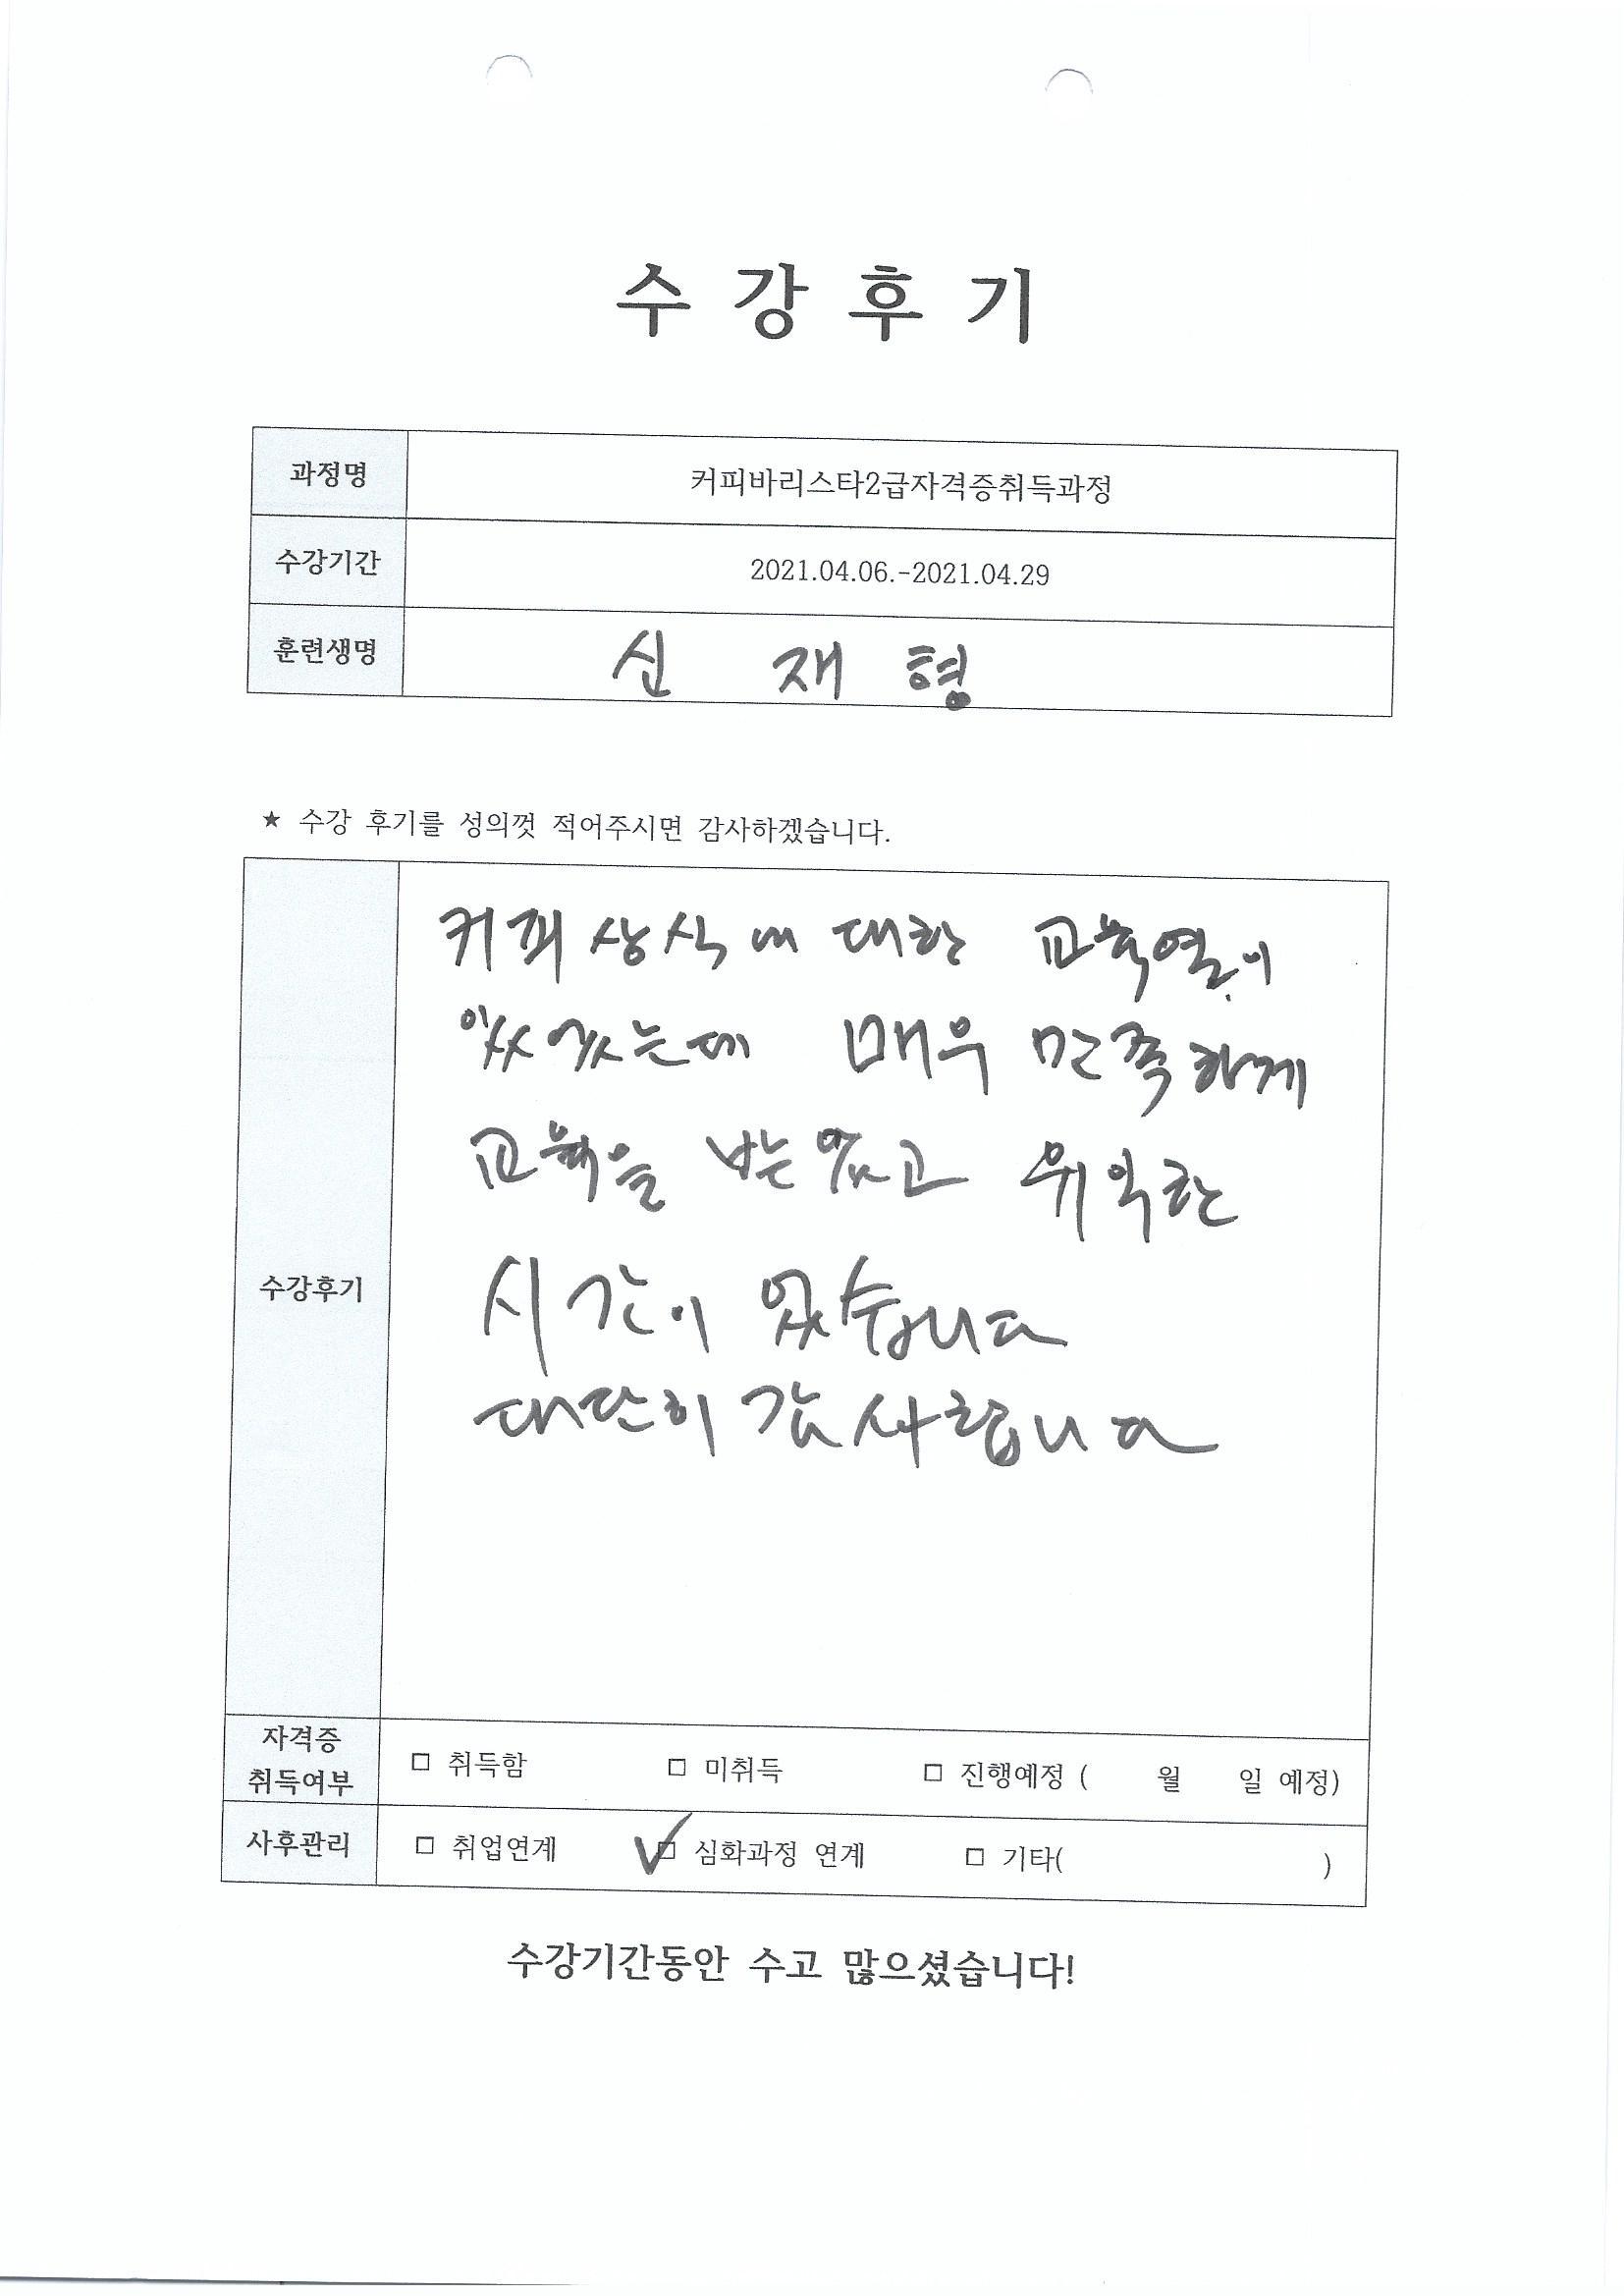 수 강 후 기
과정명 커피바리스타2급자격증취득과정
수강기간 2021.04.06.-2021.04.29
훈련생명 신 재 형
★ 수강 후기를 성의껏 적어주시면 감사하겠습니다.
수강후기
커피 상식에 대한 교육열이
있었는데 매우 만족하게
교육을 받었고 위익한
시간이 었습니다
대단히 감사합니다
자격증
취득여부
□ 취득함 □ 미취득 □ 진행예정 ( 월 일 예정)
사후관리 □ 취업연계 ✓□ 심화과정 연계 □ 기타( )
수강기간동안 수고 많으셨습니다!